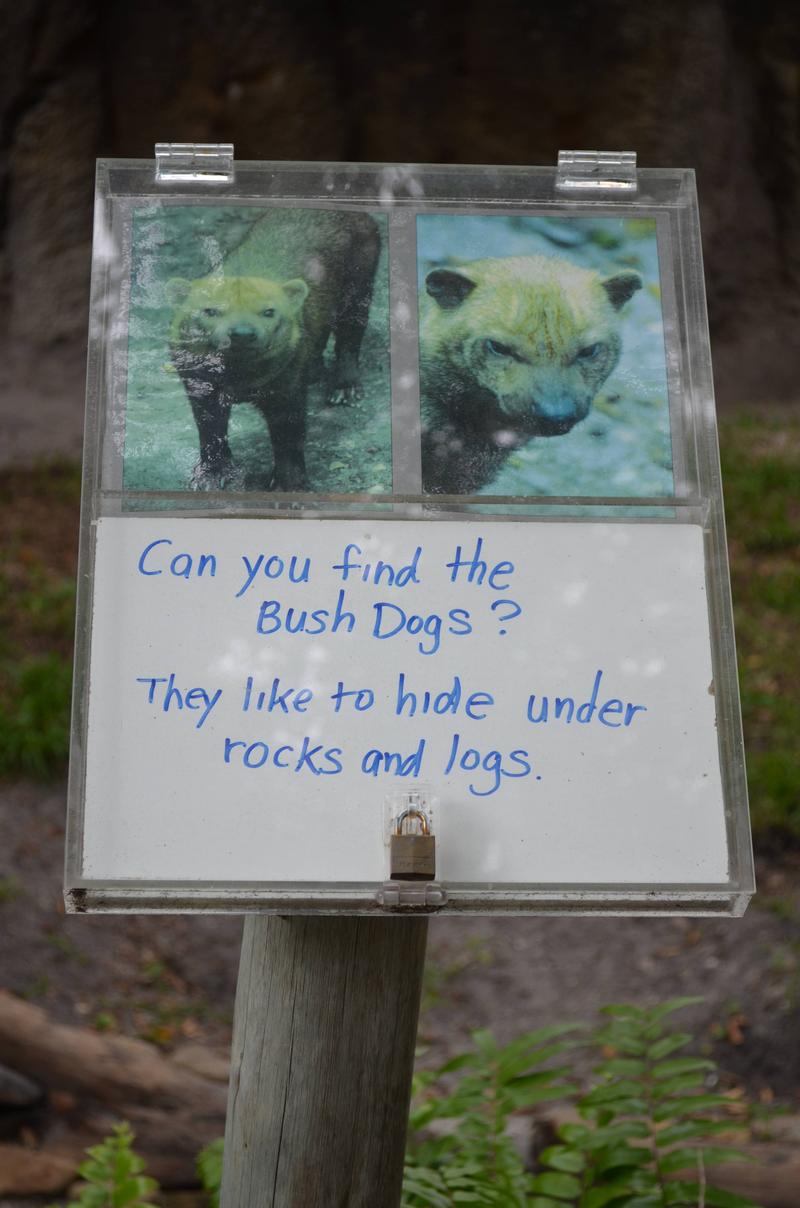 Can you find the
Bush Dogs?
They like to hide under
rocks and logs.